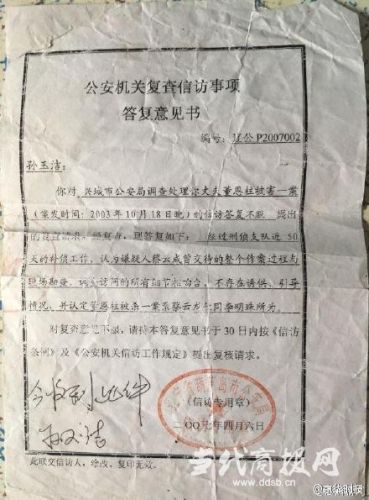 公安机关复查信访事项
答复意见书
编号:公P2007002
孙玉洁:
你对兴城市公安局调查处理你丈夫董恩柱被害一案
(案发时间:2003年10月18日晚)的信访答复不服,提出
的复查请求,经复查,现答复如下:经过刑侦支队近50
天的补侦工作,认为嫌疑人蔡云成曾交待的整个作案过程与
现场勘验、访问的所有细节相吻合,不存在诱供、引导
情况,并认定董恩柱被杀一案系蔡云成李明珠所为。
对复查意见不服,请持本答复意见书于30日内按《信访
条例》及《公安机关信访工作规定》提出复核请求。
今收到此件
孙玉洁
葫芦岛市公安局
(信访专用章)
二〇〇七年四月六日
此联交信访人,涂改、复印无效。
当代商报网
www.ddsb.cn